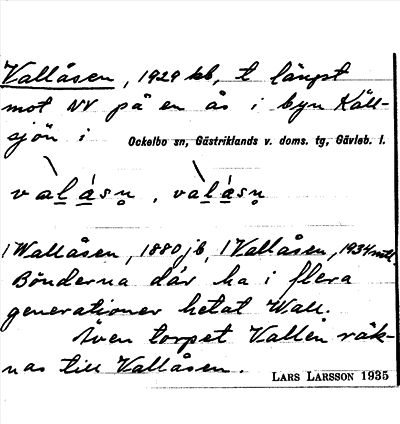 Vallåsen, 1929 kb, t längst
mot NV på en ås i byn Käll-
sjön i Ockelbo sn, Gästriklands v. doms. tg, Gävleb. l.
valåsn, valåsn
1 Wallåsen, 1880 jb, 1 Vallåsen, 1934 mtl.
Bönderna där ha i flera
generationer hetat Wall.
Även torpet Vallen räk-
nas till Vallåsen.
LARS LARSSON 1935